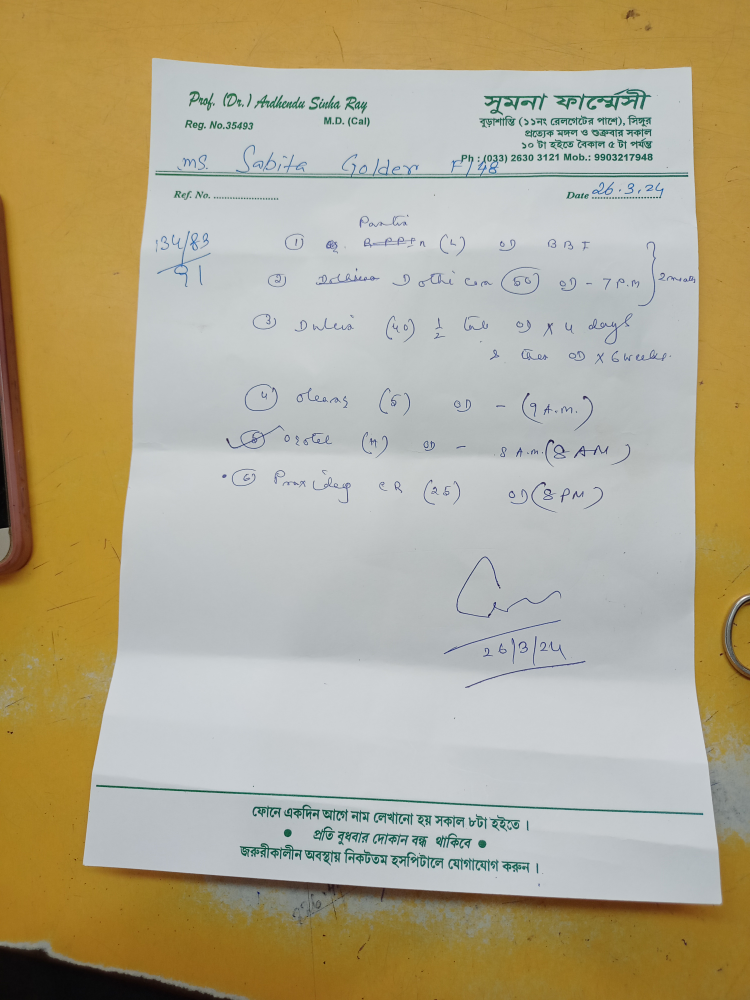 Prof. (Dr.) Ardhendu Sinha Ray
M.D. (Cal)
Reg. No.35493
সুমনা ফার্ম্মেসী
বুড়াশান্তি (১১নং রেলগেটের পাশে), সিঙ্গুর
প্রত্যেক মঙ্গল ও শুক্রবার সকাল
১০ টা হইতে বৈকাল ৫ টা পর্যন্ত
Ph : (033) 2630 3121 Mob.: 9903217948
Ms. Sabita Golder F/48
Ref. No. ........................
Date 26.3.24
134/83
91
① (4) OD BBF
② Dothi (50) OD - 7 P.M } 2 month
③ (40) ½ tab OD x 4 days
& then OD x 6 weeks.
④ (5) OD - (9 A.M.)
⑤ OD - 8 A.M. (8 AM)
⑥ CR (25) OD (8 PM)
26/3/24
ফোনে একদিন আগে নাম লেখানো হয় সকাল ৮টা হইতে ।
● প্রতি বুধবার দোকান বন্ধ থাকিবে ●
জরুরীকালীন অবস্থায় নিকটতম হসপিটালে যোগাযোগ করুন ।